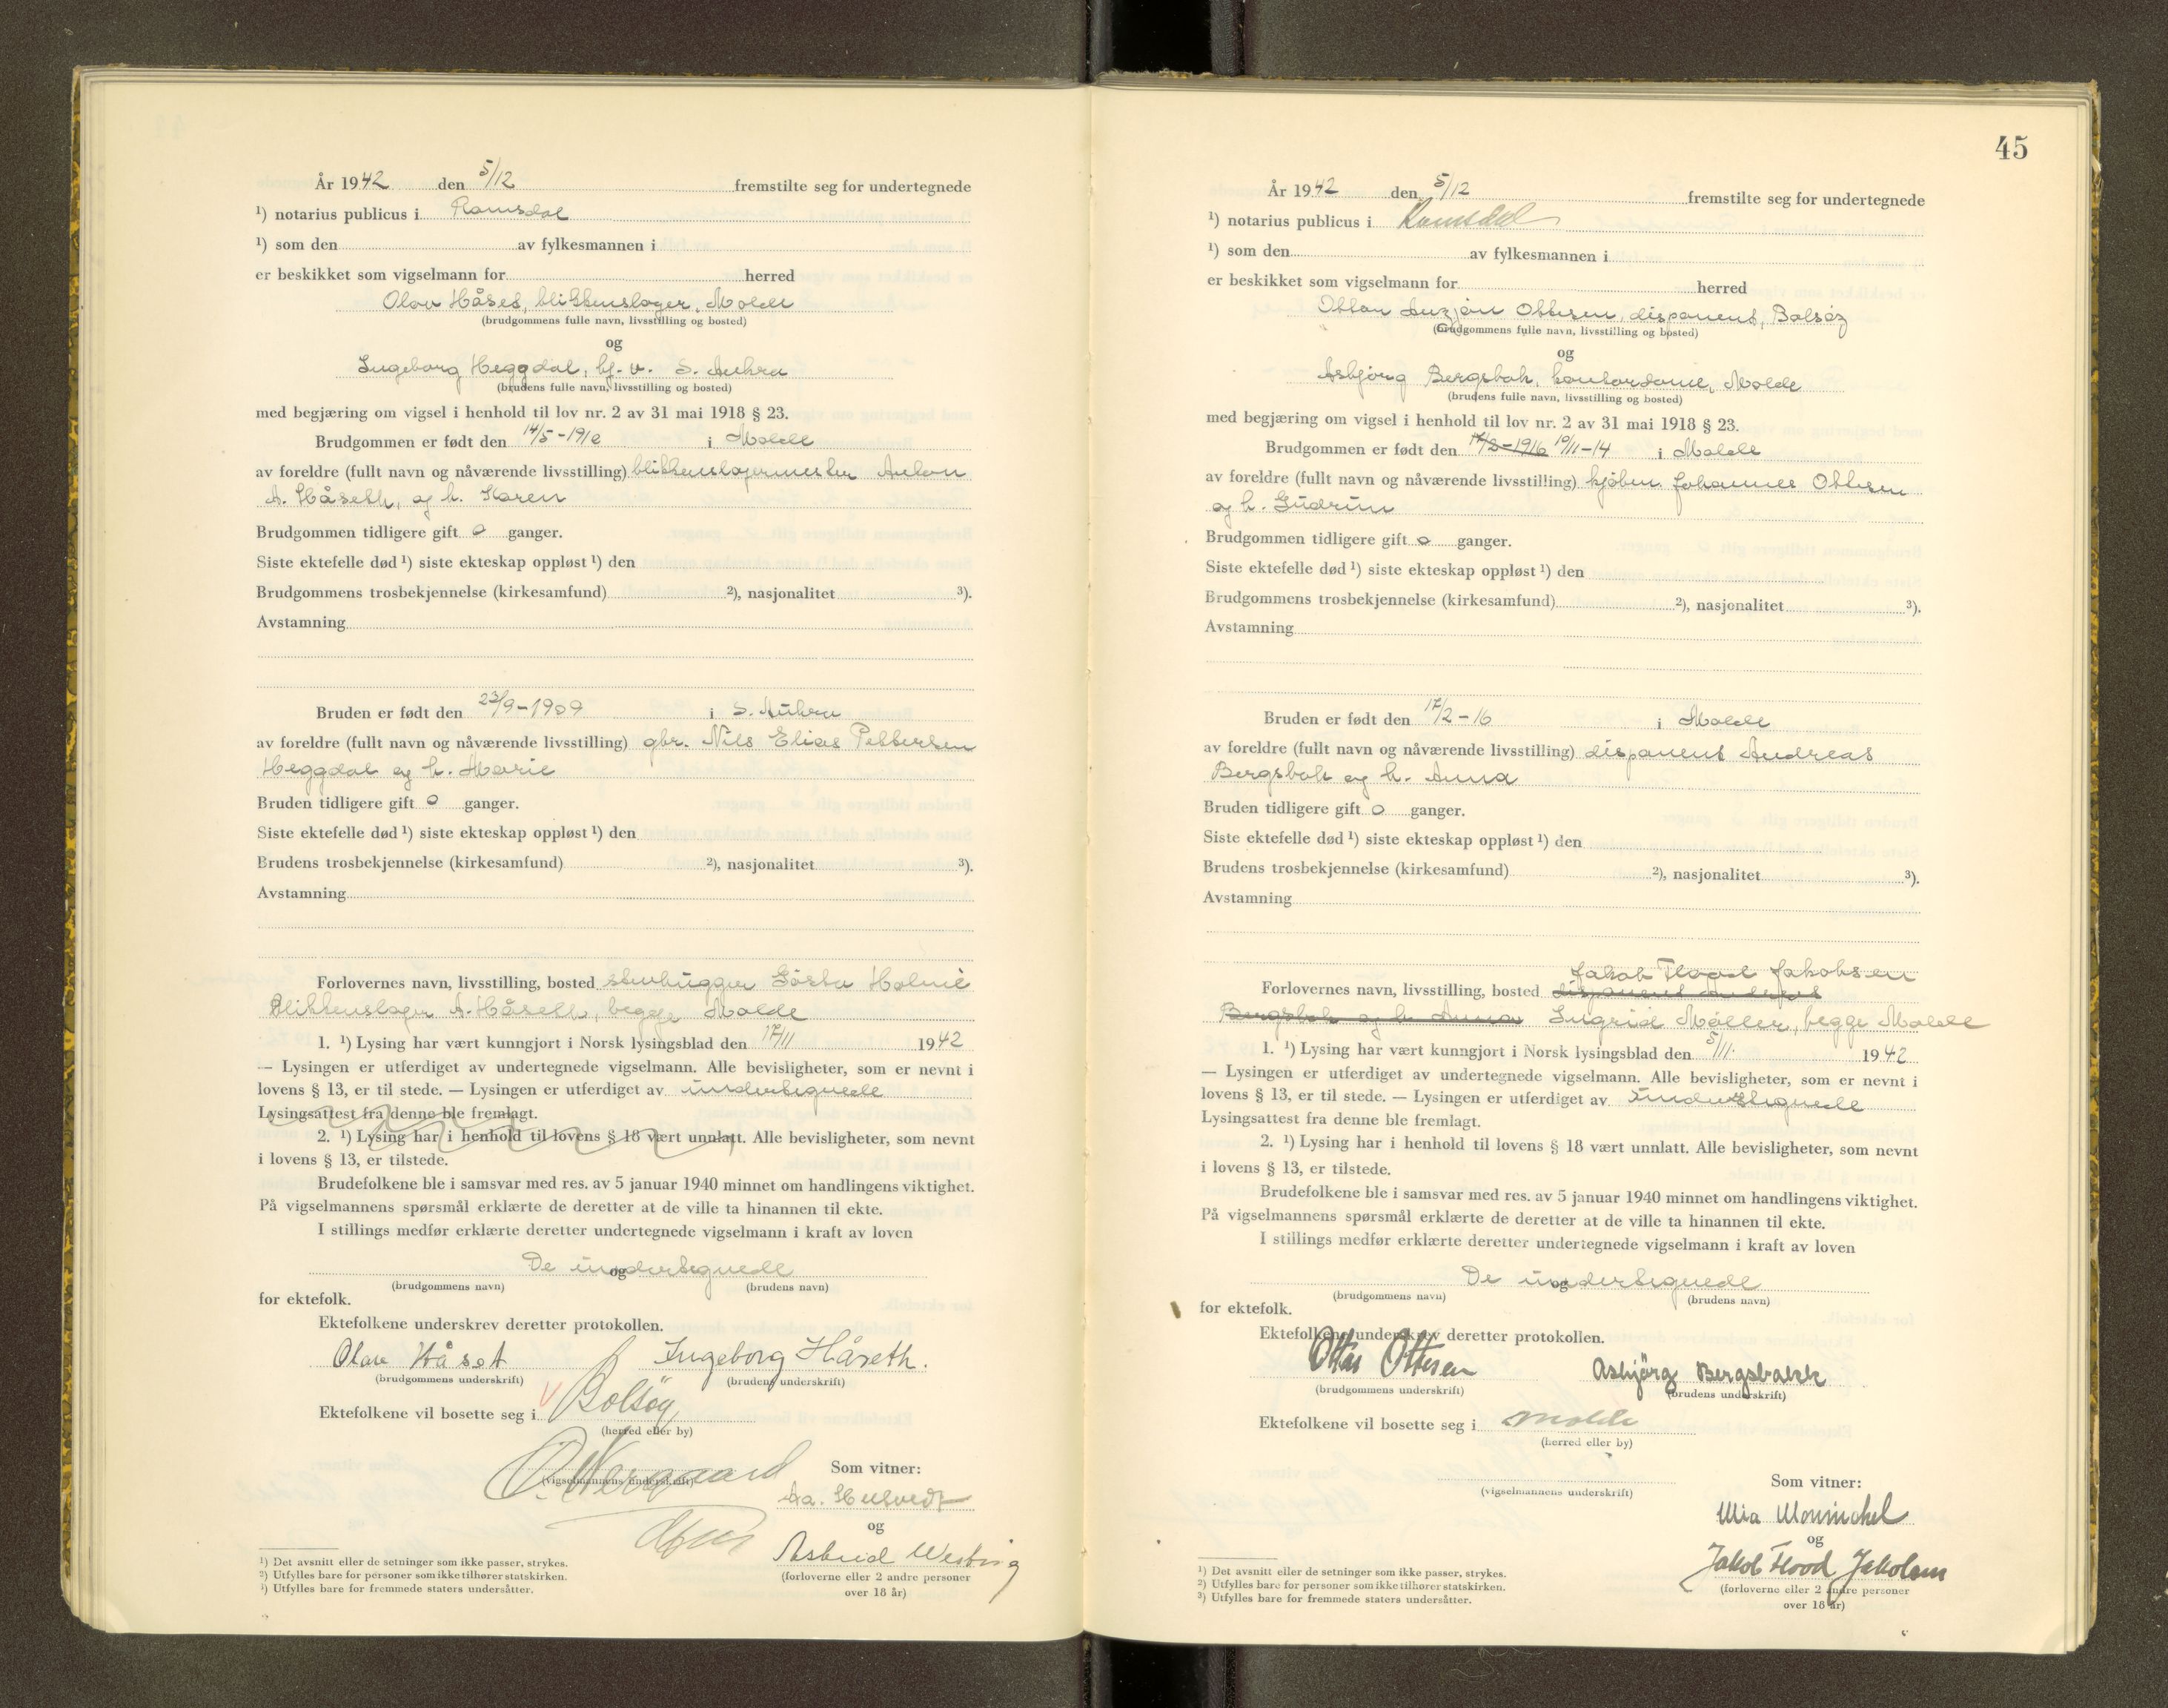 År 1942 den 5/12 fremstilte seg for undertegnede
¹) notarius publicus i Romsdal
¹) som den av fylkesmannen i
er beskikket som vigselmann for herred
Olav Håset, blikkenslager, Molde
(brudgommens fulle navn, livsstilling og bosted)
og
Ingeborg Heggdal, hj. v. S. Aukra
(brudens fulle navn, livsstilling og bosted)
med begjæring om vigsel i henhold til lov nr. 2 av 31 mai 1918 § 23.
Brudgommen er født den 14/5-1912 i Molde
av foreldre (fullt navn og nåværende livsstilling) blikkenslagermester Anton
A. Håseth, og h. Karen
Brudgommen tidligere gift 0 ganger.
Siste ektefelle død ¹) siste ekteskap oppløst ¹) den
Brudgommens trosbekjennelse (kirkesamfund) ²), nasjonalitet ³).
Avstamning
Bruden er født den 23/9-1909 i S. Aukra
av foreldre (fullt navn og nåværende livsstilling) gbr. Nils Elias Pettersen
Heggdal og h. Marie
Bruden tidligere gift 0 ganger.
Siste ektefelle død ¹) siste ekteskap oppløst ¹) den
Brudens trosbekjennelse (kirkesamfund) ²), nasjonalitet ³).
Avstamning
Forlovernes navn, livsstilling, bosted stenhugger Gösta Holmé
Blikkenslager A. Håseth, begge Molde
1. ¹) Lysing har vært kunngjort i Norsk lysingsblad den 17/11 1942
— Lysingen er utferdiget av undertegnede vigselmann. Alle bevisligheter, som er nevnt i
lovens § 13, er til stede. — Lysingen er utferdiget av undertegnede
Lysingsattest fra denne ble fremlagt.
2. ¹) Lysing har i henhold til lovens § 18 vært unnlatt. Alle bevisligheter, som nevnt
i lovens § 13, er tilstede.
Brudefolkene ble i samsvar med res. av 5 januar 1940 minnet om handlingens viktighet.
På vigselmannens spørsmål erklærte de deretter at de ville ta hinannen til ekte.
I stillings medfør erklærte deretter undertegnede vigselmann i kraft av loven
De undertegnede
og
(brudgommens navn) (brudens navn)
for ektefolk.
Ektefolkene underskrev deretter protokollen.
Olav Håset Ingeborg Håseth.
(brudgommens underskrift) (brudens underskrift)
Ektefolkene vil bosette seg i Bolsöy
(herred eller by)
(vigselmannens underskrift)
Som vitner:
Aa.
og
Astrid
(forloverne eller 2 andre personer
over 18 år)
¹) Det avsnitt eller de setninger som ikke passer, strykes.
²) Utfylles bare for personer som ikke tilhører statskirken.
³) Utfylles bare for fremmede staters undersåtter.
45
År 1942 den 5/12 fremstilte seg for undertegnede
¹) notarius publicus i Romsdal
¹) som den av fylkesmannen i
er beskikket som vigselmann for herred
Ottar Ottesen, disponent, Bolsöy
(brudgommens fulle navn, livsstilling og bosted)
og
Asbjörg Bergsbak, kontordame, Molde
(brudens fulle navn, livsstilling og bosted)
med begjæring om vigsel i henhold til lov nr. 2 av 31 mai 1918 § 23.
Brudgommen er født den 17/2-1916 19/11-14 i Molde
av foreldre (fullt navn og nåværende livsstilling) kjøbm. Johannes Ottesen
og h. Gudrun
Brudgommen tidligere gift 0 ganger.
Siste ektefelle død ¹) siste ekteskap oppløst ¹) den
Brudgommens trosbekjennelse (kirkesamfund) ²), nasjonalitet ³).
Avstamning
Bruden er født den 17/2-16 i Molde
av foreldre (fullt navn og nåværende livsstilling) disponent Andreas
Bergsbak og h. Anna
Bruden tidligere gift 0 ganger.
Siste ektefelle død ¹) siste ekteskap oppløst ¹) den
Brudens trosbekjennelse (kirkesamfund) ²), nasjonalitet ³).
Avstamning
Jakob Flood Jakobsen
Forlovernes navn, livsstilling, bosted disponent Andreas
Bergsbak og h. Anna Ingrid Møller, begge Molde
1. ¹) Lysing har vært kunngjort i Norsk lysingsblad den 5/11. 1942
— Lysingen er utferdiget av undertegnede vigselmann. Alle bevisligheter, som er nevnt i
lovens § 13, er til stede. — Lysingen er utferdiget av undertegnede
Lysingsattest fra denne ble fremlagt.
2. ¹) Lysing har i henhold til lovens § 18 vært unnlatt. Alle bevisligheter, som nevnt
i lovens § 13, er tilstede.
Brudefolkene ble i samsvar med res. av 5 januar 1940 minnet om handlingens viktighet.
På vigselmannens spørsmål erklærte de deretter at de ville ta hinannen til ekte.
I stillings medfør erklærte deretter undertegnede vigselmann i kraft av loven
De undertegnede
og
(brudgommens navn) (brudens navn)
for ektefolk.
Ektefolkene underskrev deretter protokollen.
Ottar Ottesen Asbjörg Bergsbakk
(brudgommens underskrift) (brudens underskrift)
Ektefolkene vil bosette seg i Molde
(herred eller by)
(vigselmannens underskrift)
Som vitner:
Mia
og
Jakob Flood Jakobsen
(forloverne eller 2 andre personer
over 18 år)
¹) Det avsnitt eller de setninger som ikke passer, strykes.
²) Utfylles bare for personer som ikke tilhører statskirken.
³) Utfylles bare for fremmede staters undersåtter.